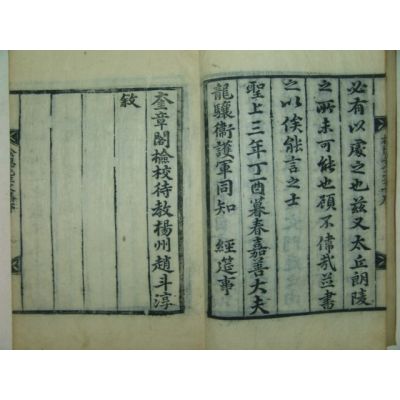 必有以處之也茲又太丘朗陵
之所未可能也顧不偉哉並書
之以俟能言之士
聖上三年丁酉暮春嘉善大夫
龍驤衛護軍同知 經筵事
奎章閣檢校待敎楊州趙斗淳
敘